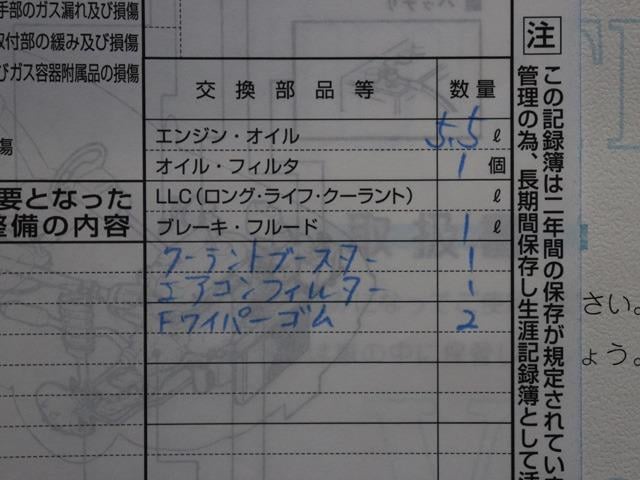 手部のガス漏れ及び損傷
取付部の緩み及び損傷
びガス容器附属品の損傷
傷
要となった
整備の内容
交換部品等 数量
エンジン・オイル 5.5 ℓ
オイル・フィルタ 1 個
LLC(ロング・ライフ・クーラント) ℓ
ブレーキ・フルード 1 ℓ
クーラントブースター 1
エアコンフィルター 1
Fワイパーゴム 2
注
この記録簿は二年間の保存が規定されていま
管理の為、長期間保存し生涯記録簿として活
さい。
ょう。